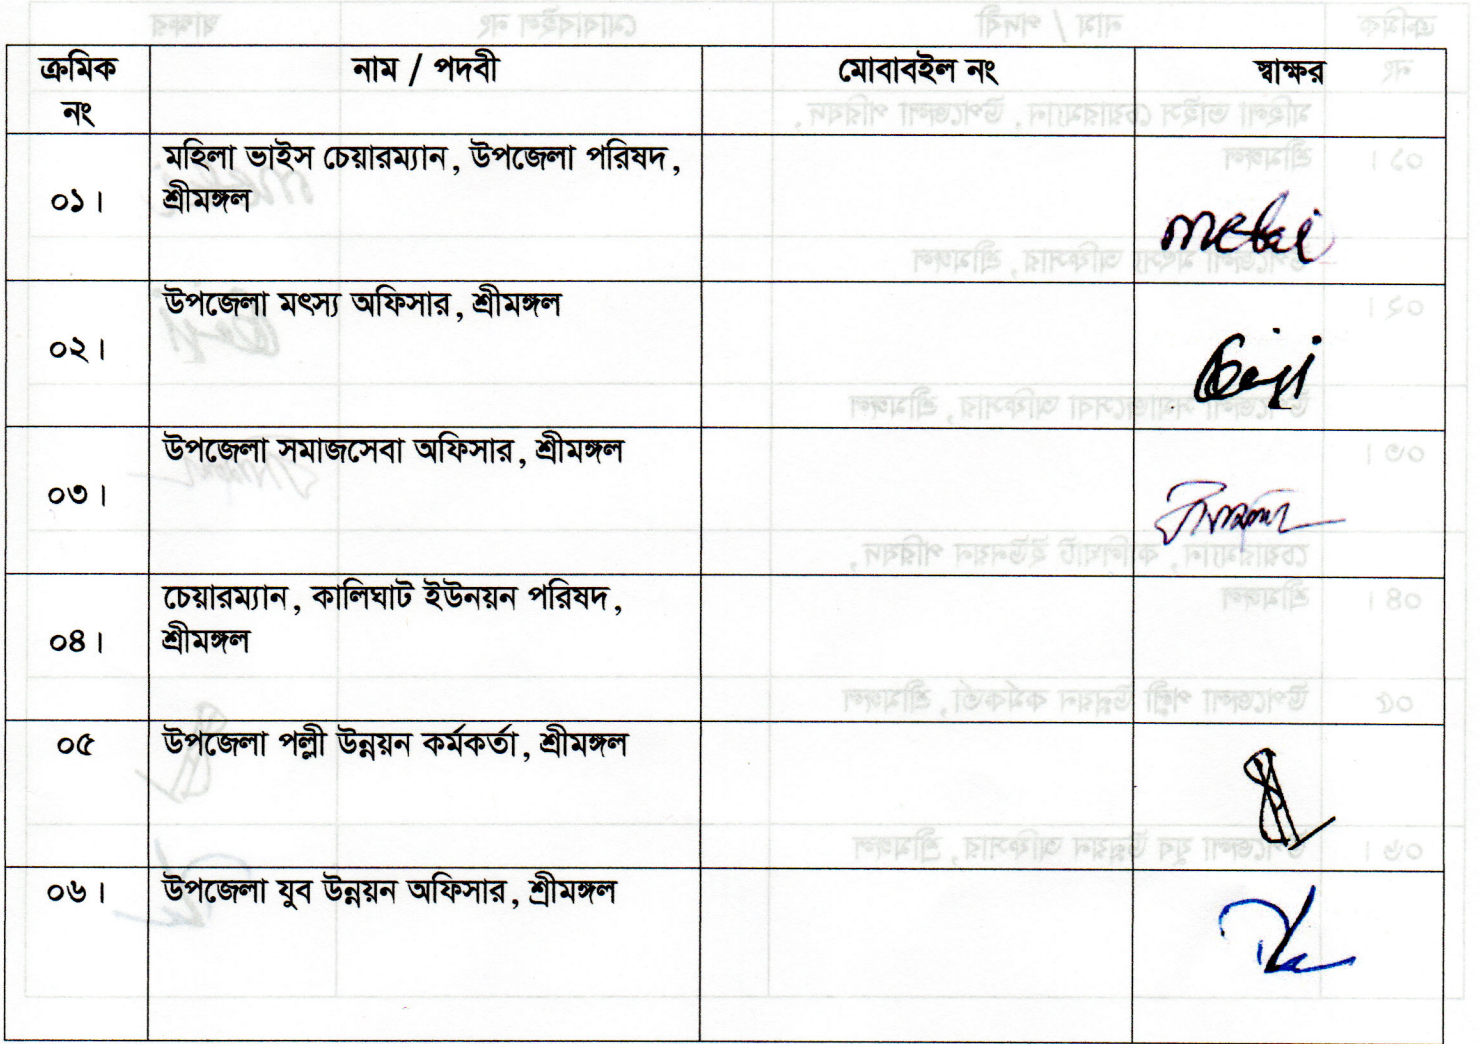 ক্রমিক নং	নাম / পদবী	মোবাবইল নং	স্বাক্ষর
০১। মহিলা ভাইস চেয়ারম্যান, উপজেলা পরিষদ,
শ্রীমঙ্গল
০২। উপজেলা মৎস্য অফিসার, শ্রীমঙ্গল
০৩। উপজেলা সমাজসেবা অফিসার, শ্রীমঙ্গল
০৪। চেয়ারম্যান, কালিঘাট ইউনয়ন পরিষদ,
শ্রীমঙ্গল
০৫ উপজেলা পল্লী উন্নয়ন কর্মকর্তা, শ্রীমঙ্গল
০৬। উপজেলা যুব উন্নয়ন অফিসার, শ্রীমঙ্গল